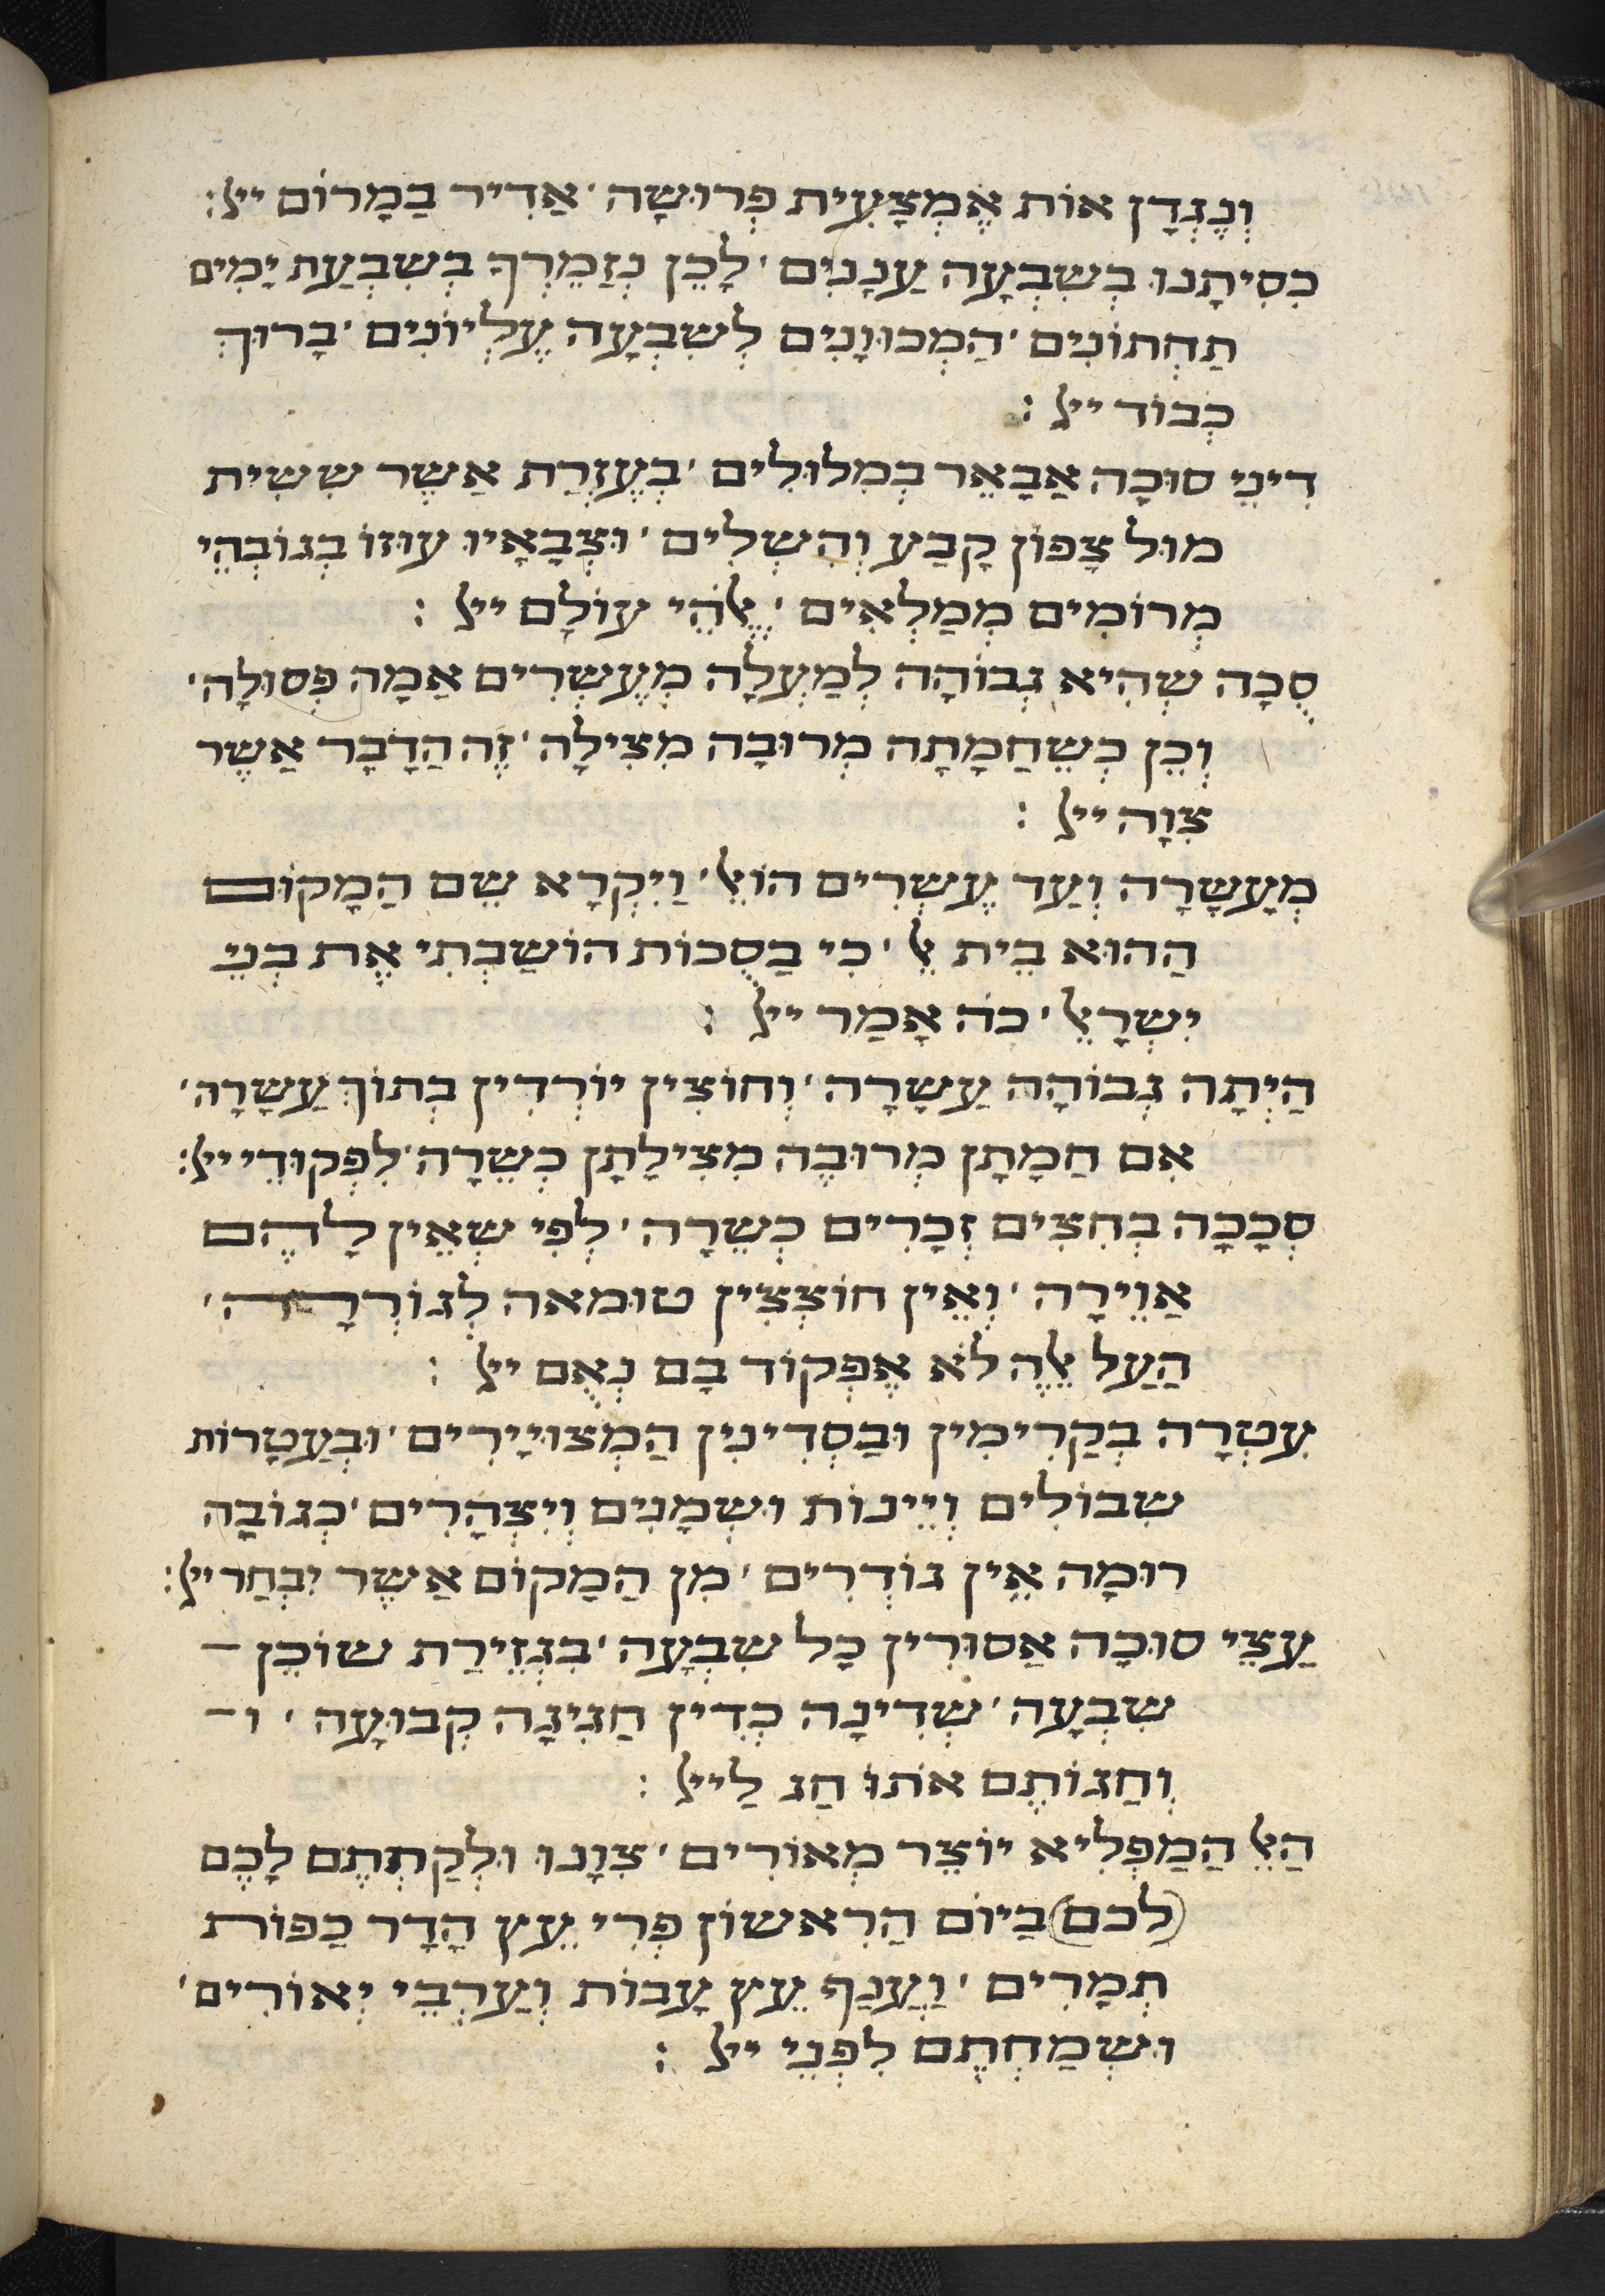 וְנֶגְדָן אוֹת אֶמְצָעִית פְּרוּשָה ׳ אַדִיר בַמָרוֹם ייל :
כִסִיתָנוּ בְשִבְעָה עַנָנִים ׳ לָכֵן נְזַמֶרְךָ בְשִבְעַת יָמִים
תַחְתוֹנִים ׳ הַמְכוּוָנִים לְשִבְעָה עֶלְיוֹנִים ׳ בָרוּךְ
כְבוֹד ייל :
דִינֵי סוּכָה אַבָאֵר בְמִלוּלִים ׳ בְעֶזְרַת אַשֶר שִשִית
מוּל צָפוֹן קָבַע וְהִשְלִים ׳ וּצְבָאָיו עוּזוֹ בְגוֹבְהֵי
מְרוֹמִים מְמַלְאִים ׳ אֱלֹהֵי עוֹלָם ייל :
סֻכָה שְהִיא גְבוֹהָה לְמַעְלָה מְעֶשְרִים אַמָה פְּסוּלָה ׳
וְכֵן כְשֵחַמָתָה מְרוּבָה מִצִילָה ׳ זֶה הַדָבָר אַשֶר
צִוָה ייל :
מְעַשָרָה וְעַד עֶשְרִים הוֹאֵל ׳ וַיִקְרָא שֵם הַמָקוֹם
הַהוּא בֵית אֵל ׳ כִי בַסֻכּוֹת הוֹשַבְתִי אֶת בְנֵי
יִשְרָאֵל ׳ כֹה אָמַר ייל :
הַיְתָה גְבוֹהָה עַשָרָה ׳ וְחוֹצִין יוֹרְדִין בְתוֹךְ עַשָרָה ׳
אִם חַמָתָן מְרוּבֶה מִצִילָתָן כְשֵרָה ׳ לִפְקוּדֵי ייל :
סְכָכָה בְחִצִים זְכָרִים כְשֵרָה ׳ לְפִי שְאֵין לָהֶם
אַוֵירָה ׳ וְאֵין חוֹצְצִין טוּמאה לְגוֹרְרָה ׳
הַעַל אֵלֶה לֹא אֶפְקוֹד בָם נְאֻם ייל :
עִטְרָה בְקַרִימִין וּבַסְדִינִין הַמְצוּיָירִים ׳ וּבְעַטָרוֹת
שִבוֹלִים וְיֵינוֹת וּשְמָנִים וְיִצְהָרִים ׳ כְגוֹבָה
רוּמָה אֵין גוֹדְרִים ׳ מִן הַמָקוֹם אַשֶר יִבְחַר ייל :
עַצֵי סוּכָה אַסוּרִין כָל שִבְעָה ׳ בִגְזֵירַת שוֹכֵן –
שִבְעָה ׳ שְדִינָה כְדִין חַגִיגָה קְבוּעָה ׳ ו–
וְחַגוֹתֶם אֹתוֹ חַג לַייל :
הָאֵל הַמַפְלִיא יוֹצֵר מְאוֹרִים ׳ צִוָנוּ וּלְקַחְתֶם לָכֶם
(לכם) בַיוֹם הַרִאשוֹן פְרִי עֵץ הָדָר כַפּוֹת
תְמָרִים ׳ וַעֲנַף עֵץ עָבוֹת וְעַרְבֵי יְאוֹרִים ׳
וּשְמַחְתֶם לִפְנֵי ייל :